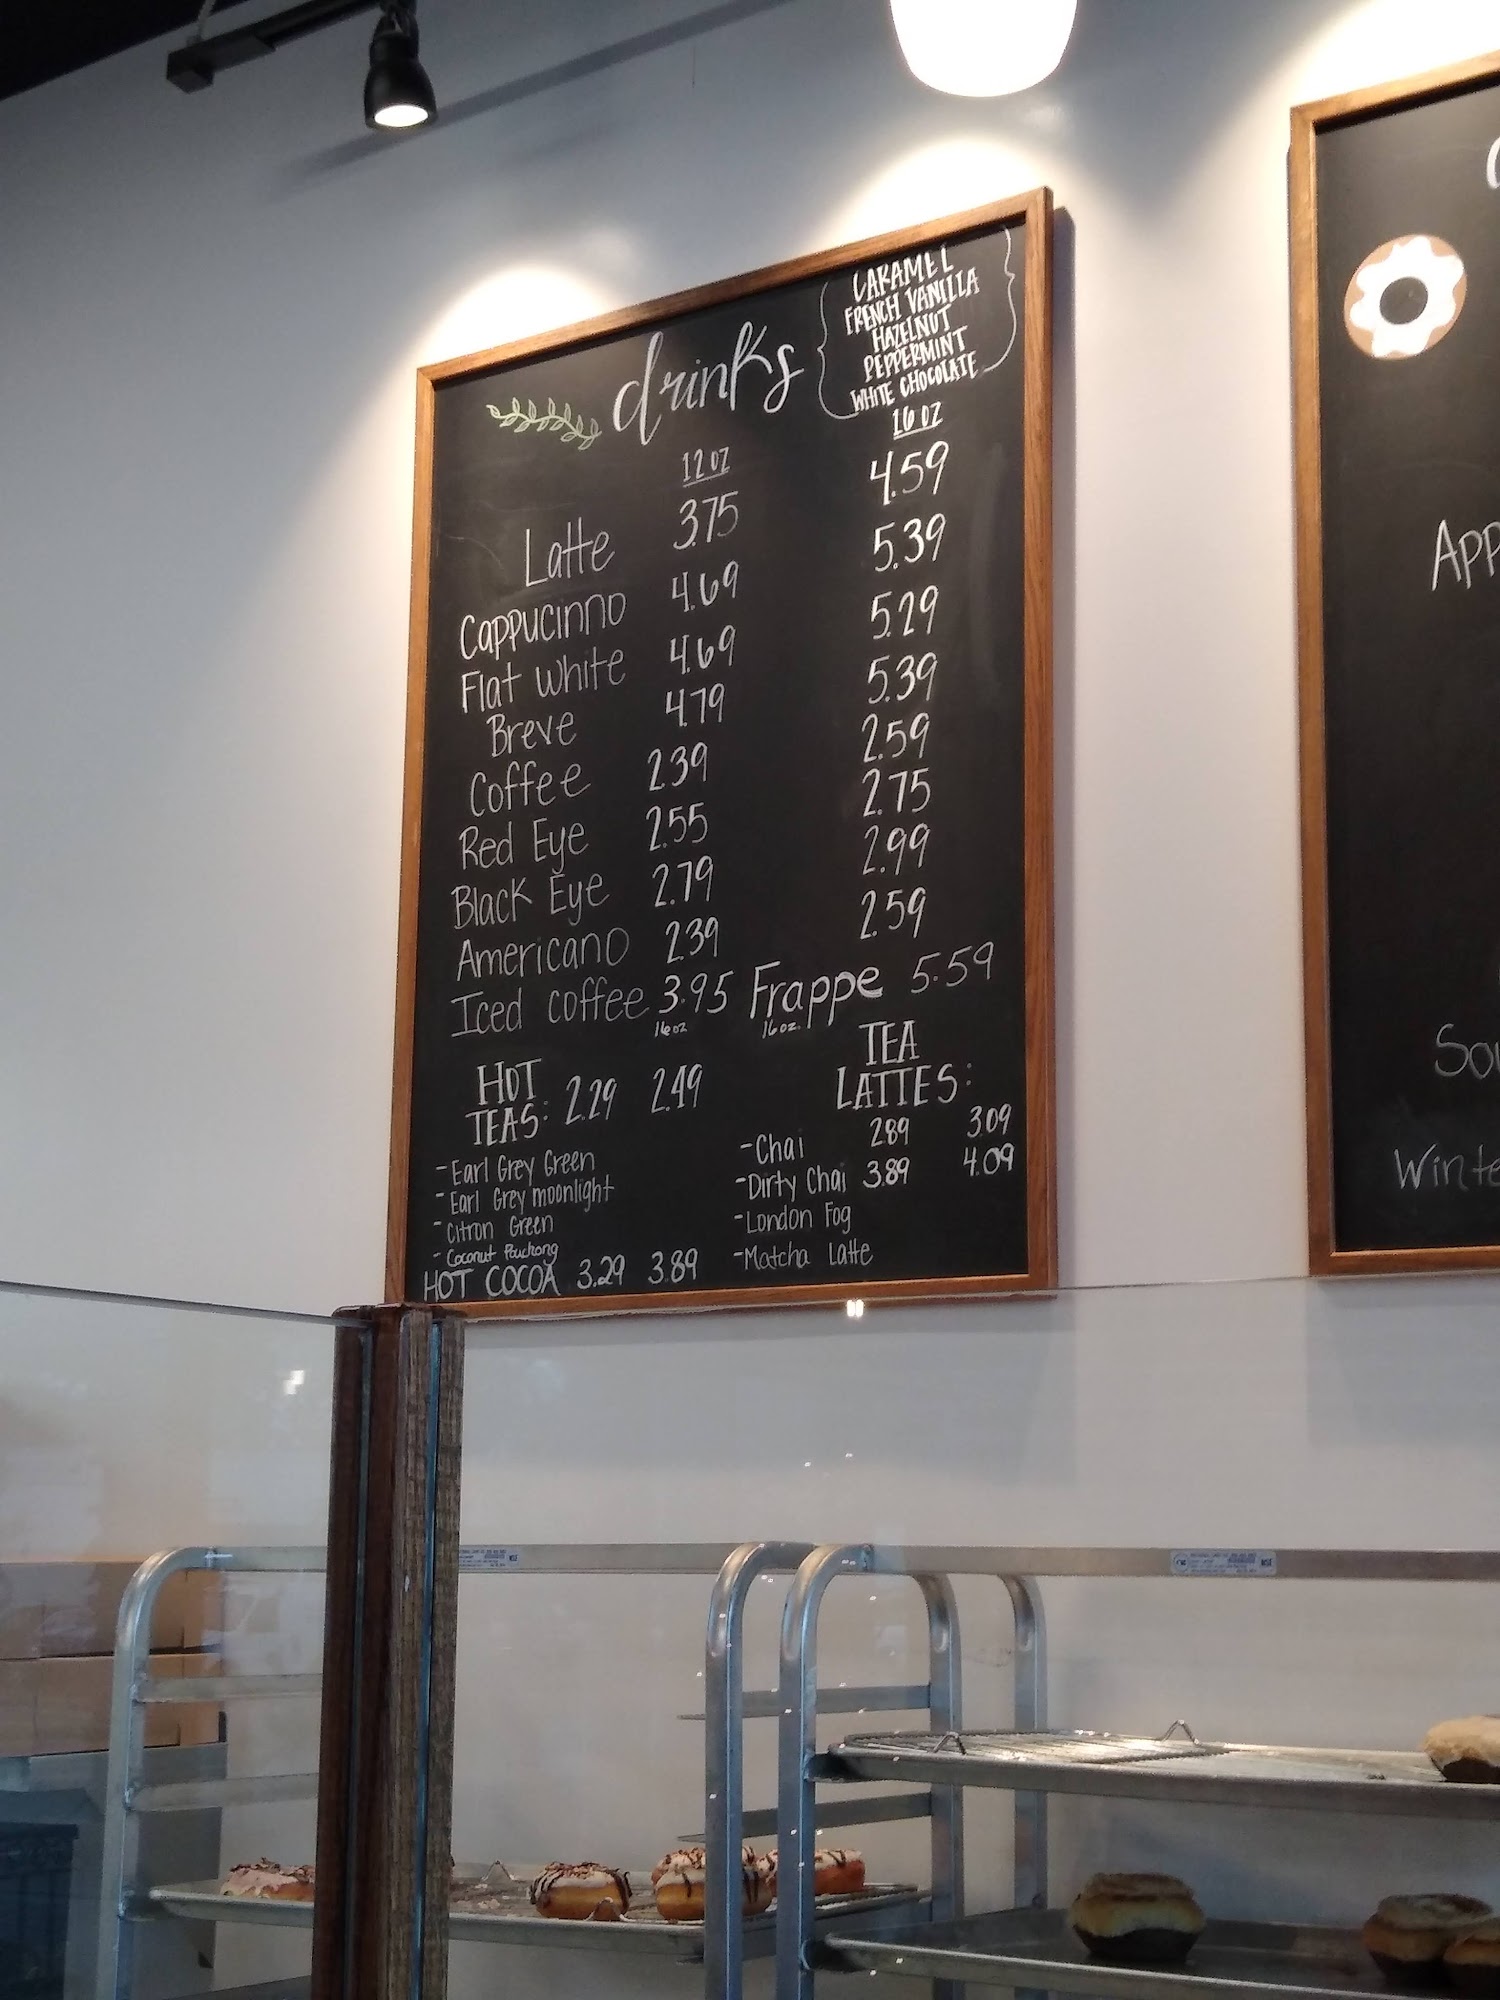 CARAMEL
FRENCH VANILLA
HAZELNUT
PEPPERMINT
WHITE CHOCOLATE
drinks
12 OZ 16 OZ
Latte 3.75 4.59
Cappucinno 4.69 5.39
Flat white 4.69 5.29
Breve 4.79 5.39
Coffee 2.39 2.59
Red Eye 2.55 2.75
Black Eye 2.79 2.99
Americano 2.39 2.59
Iced coffee 3.95 Frappe 5.59
16 oz 16 oz.
HOT
TEAS: 2.29 2.49
- Earl Grey Green
- Earl Grey moonlight
- Citron Green
- Coconut Pouchong
HOT COCOA 3.29 3.89
TEA
LATTES:
- Chai 2.89 3.09
- Dirty Chai 3.89 4.09
- London Fog
- Matcha Latte
App
Sou
Winte